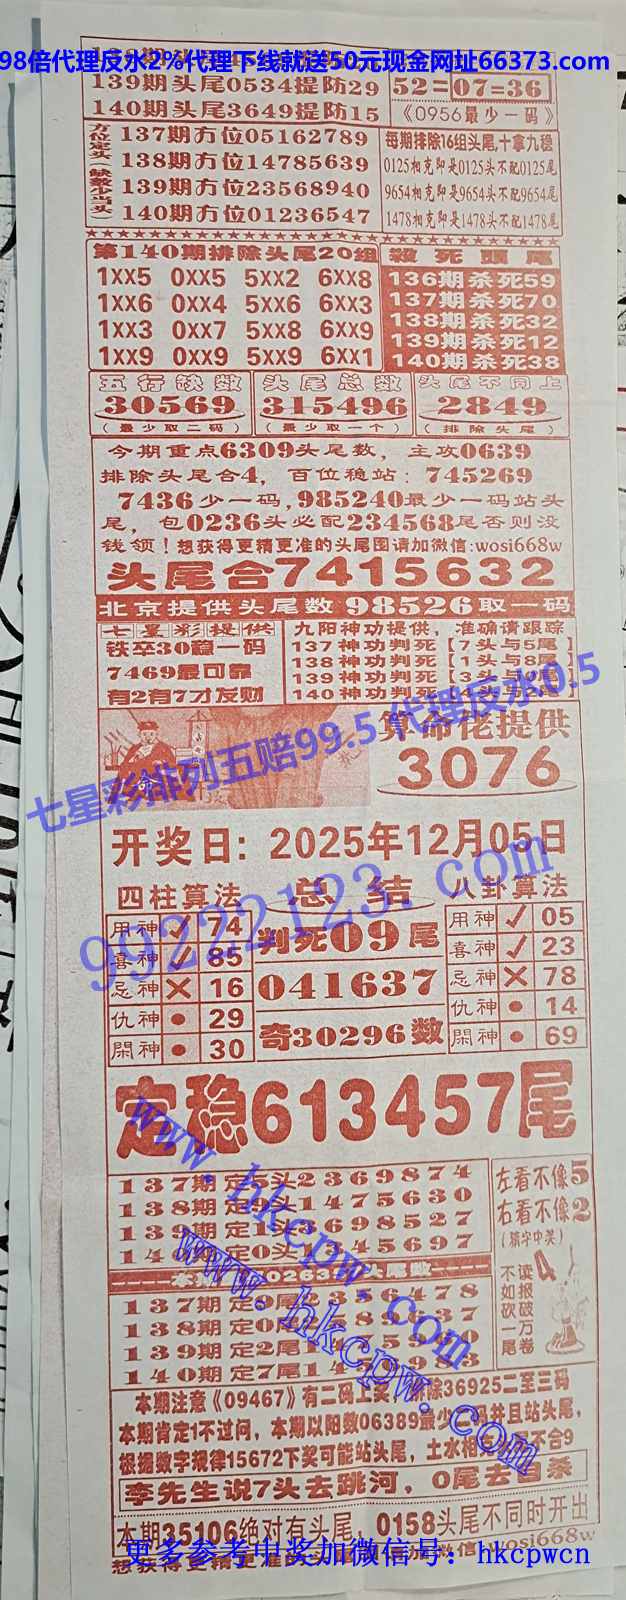 98倍代理反水2%代理下线就送50元现金网址66373.com
139期头尾0534提防29
140期头尾3649提防15
52=07=36
《0956最少一码》
方位定头(缺数少当头)
137期方位05162789
138期方位14785639
139期方位23568940
140期方位01236547
每期排除16组头尾,十拿九稳
0125相克即是0125头不配0125尾
9654相克即是9654头不配9654尾
1478相克即是1478头不配1478尾
★★★★★★★★★★★★★★★★★★★★★★★★★★★★★★
第140期排除头尾20组
1XX5 0XX5 5XX2 6XX8
1XX6 0XX4 5XX6 6XX3
1XX3 0XX7 5XX8 6XX9
1XX9 0XX9 5XX9 6XX1
殺死頭尾
136期杀死59
137期杀死70
138期杀死32
139期杀死12
140期杀死38
五行缺数
30569
(最少取二码)
头尾总数
315496
(最少取一个)
头尾不同上
2849
(排除头尾)
今期重点6309头尾数，主攻0639
排除头尾合4，百位稳站：745269
7436少一码,985240最少一码站头
尾，包0236头必配234568尾否则没
钱领！想获得更精更准的头尾图请加微信:wosi668w
头尾合7415632
北京提供头尾数98526取一码
七星彩提供
铁卒30稳一码
7469最可靠
有2有7才发财
九阳神功提供，准确请跟踪
137神功判死【7头与5尾】
138神功判死【1头与8尾】
139神功判死【3头与0尾】
140神功判死
七星彩排列五赔99.5 代理反水0.5
算命佬提供
3076
开奖日：2025年12月05日
99222123.com
四柱算法
用神 ✓ 74
喜神 ✓ 85
忌神 × 16
仇神 ● 29
閑神 ● 30
总结
判死09尾
041637
奇30296数
八卦算法
用神 ✓ 05
喜神 ✓ 23
忌神 × 78
仇神 ● 14
閑神 ● 69
定稳613457尾
www.hkcpw.com
www.hkcpw.com
137期定5头2369874
138期定9头1475630
139期定1头3698527
140期定0头1345697
137期定9尾2356478
138期定0尾
139期定2尾
140期定7尾
左看不像5
右看不像2
(猜字中奖)
4
不如砍尾
读报破万卷
本期注意《09467》有二码上奖，排除36925二至三码
本期肯定1不过问，本期以阳数06389最少二码并且站头尾，
根据数字规律15672下奖可能站头尾，土水相克头尾不合9
李先生说7头去跳河，0尾去自杀
本期35106绝对有头尾，0158头尾不同时开出
更多参考中奖加微信号：hkcpwcn